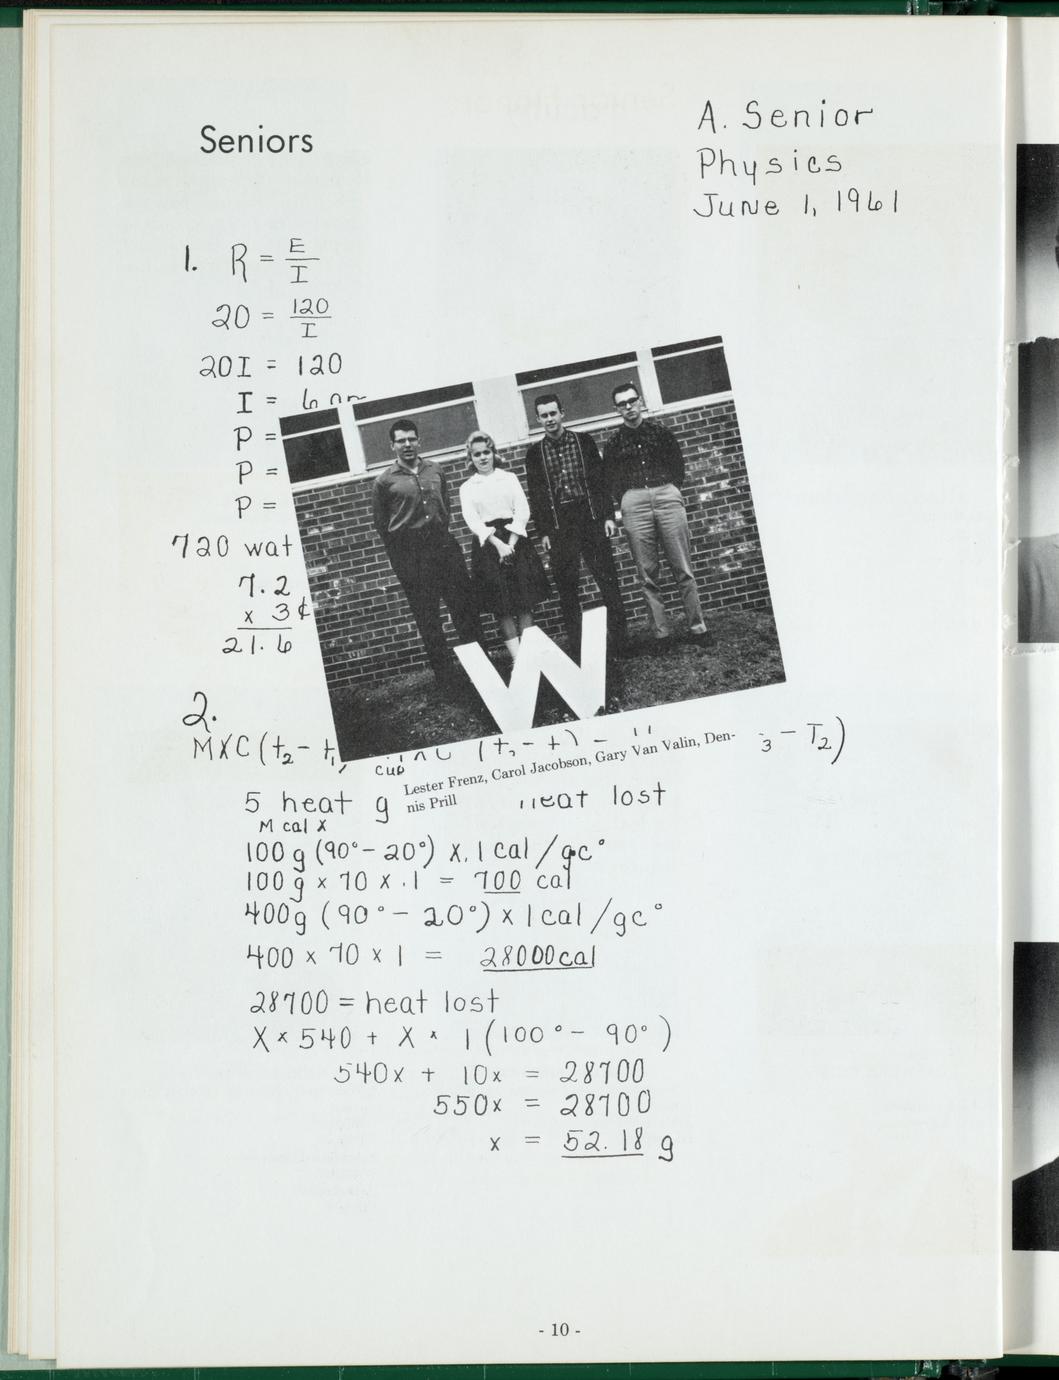 Seniors
A. Senior
Physics
June 1, 1961
1. R = E/I
20 = 120/I
20I = 120
I = 6
P =
P =
P =
720 wat
7.2
x 3¢
21.6
2.
MXC (t₂ - t₁ (t₂ - t) - ₃ - T₂)
cup
Lester Frenz, Carol Jacobson, Gary Van Valin, Den-
nis Prill
5 heat g heat lost
M cal x
100g (90° - 20°) x .1 cal/gc°
100g x 70 x .1 = 700 cal
400g (90° - 20°) x 1cal/gc°
400 x 70 x 1 = 28000cal
28700 = heat lost
X x 540 + X x 1 (100° - 90°)
540x + 10x = 28700
550x = 28700
x = 52.18 g
W
- 10 -